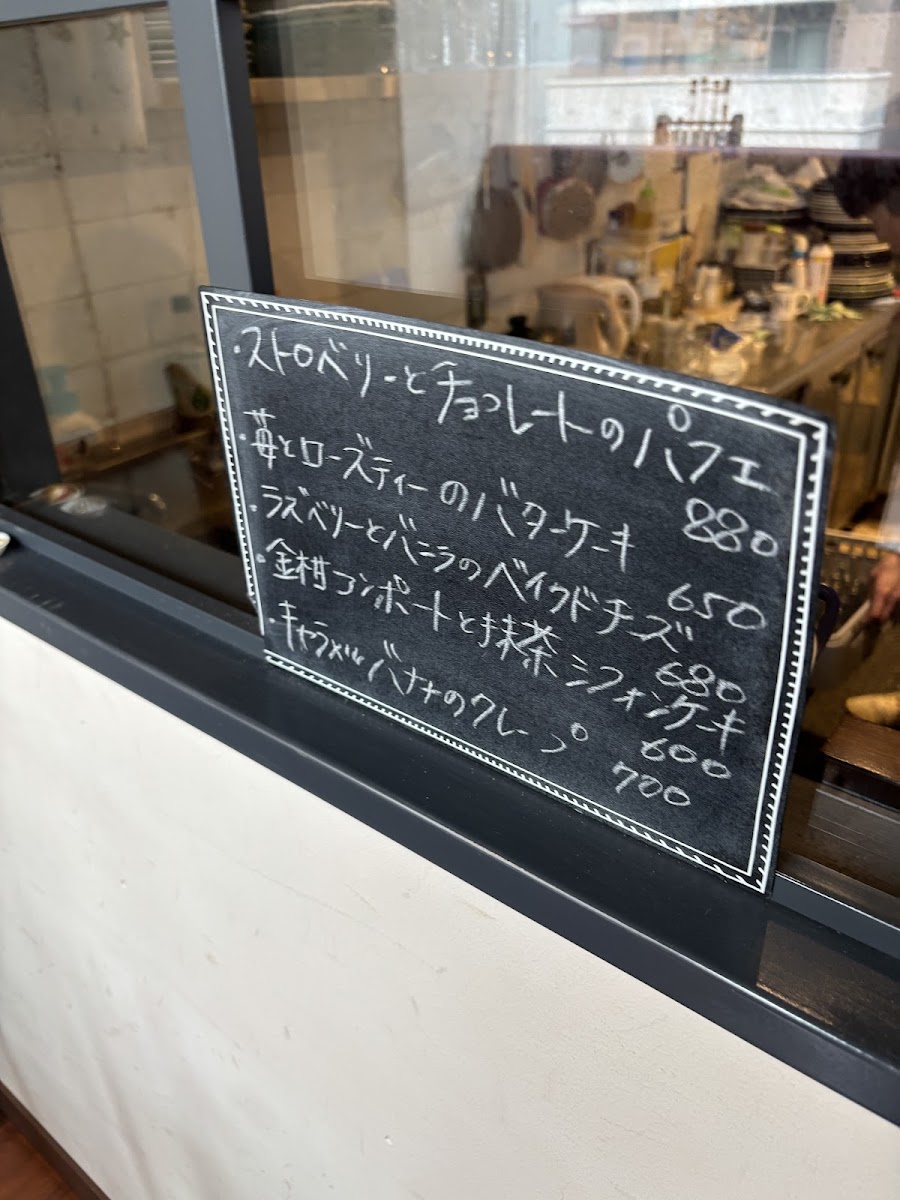 ・ストロベリーとチョコレートのパフェ
880
・苺とローズティーのバターケーキ
650
・ラズベリーとバニラのベイクドチーズ
680
・金柑コンポートと抹茶シフォンケーキ
600
・キャラメルバナナのクレープ
700